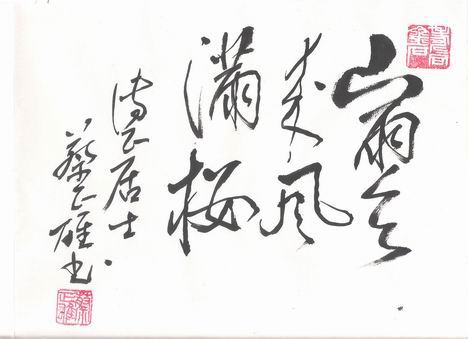 山雨欲
来风
满楼
居士
蔡正雄书